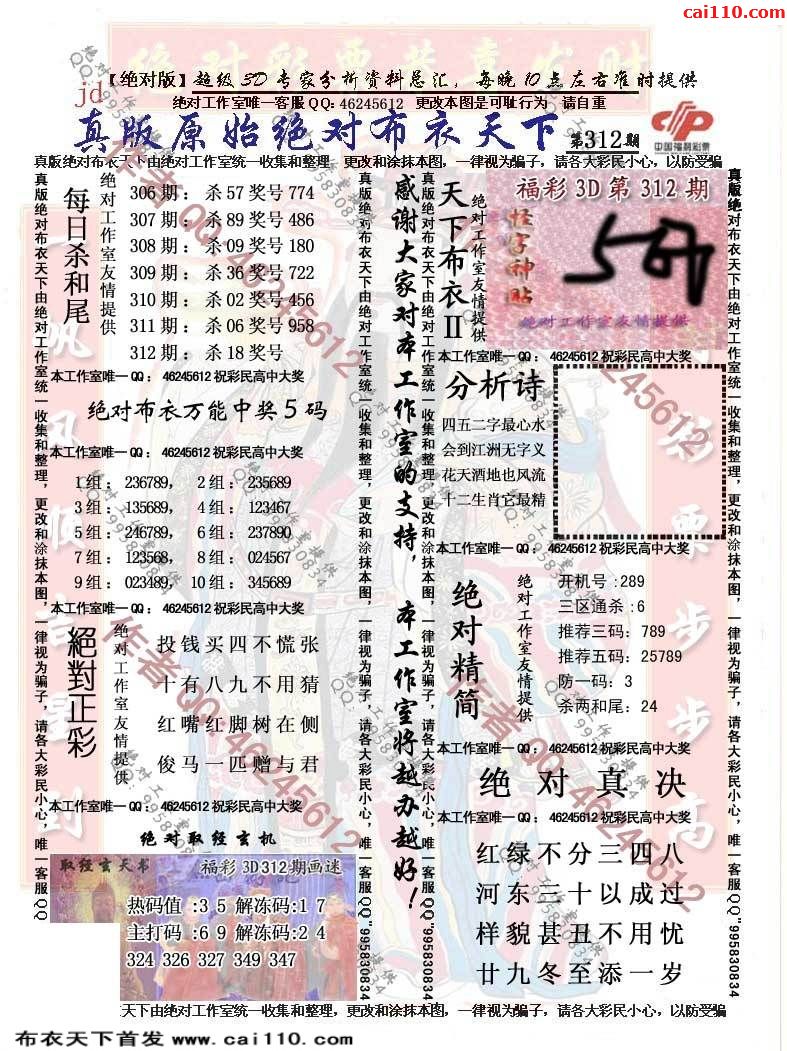 cai110.com
【绝对版】超级3D专家分析资料总汇，每晚10点左右准时提供
jd
绝对工作室唯一客服QQ：46245612 更改本图是可耻行为 请自重
真版原始绝对布衣天下 第312期
中国福利彩票
真版绝对布衣天下由绝对工作室统一收集和整理，更改和涂抹本图，一律视为骗子，请各大彩民小心，以防受骗
真版绝对布衣天下由绝对工作室统一收集和整理，更改和涂抹本图，一律视为骗子，请各大彩民小心，唯一客服QQ
每日杀和尾
绝对工作室友情提供
306期：杀57奖号774
307期：杀89奖号486
308期：杀09奖号180
309期：杀36奖号722
310期：杀02奖号456
311期：杀06奖号958
312期：杀18奖号
本工作室唯一QQ：46245612祝彩民高中大奖
绝对布衣万能中奖5码
本工作室唯一QQ：46245612祝彩民高中大奖
1组：236789， 2组：235689
3组：135689， 4组：123467
5组：246789， 6组：237890
7组：123568， 8组：024567
9组：023489， 10组：345689
本工作室唯一QQ：46245612祝彩民高中大奖
絕對正彩
绝对工作室友情提供
投钱买四不慌张
十有八九不用猜
红嘴红脚树在侧
俊马一匹赠与君
本工作室唯一QQ：46245612祝彩民高中大奖
绝对取经玄机
取经玄天书
福彩3D312期画迷
热码值：3 5 解冻码：1 7
主打码：6 9 解冻码：2 4
324 326 327 349 347
真版绝对布衣天下由绝对工作室统一收集和整理，更改和涂抹本图，一律视为骗子，请各大彩民小心，唯一客服QQ"995830834
感谢大家对本工作室的支持，本工作室将越办越好！
真版绝对布衣天下由绝对工作室统一收集和整理，更改和涂抹本图，一律视为骗子，请各大彩民小心，唯一客服QQ"995830834
天下布衣II
绝对工作室友情提供
福彩3D第312期
怪字神贴
绝对工作室友情提供
本工作室唯一QQ：46245612祝彩民高中大奖
分析诗
四五二字最心水
会到江洲无字义
花天酒地也风流
十二生肖它最精
本工作室唯一QQ：46245612祝彩民高中大奖
绝对精简
绝对工作室友情提供
开机号：289
三区通杀：6
推荐三码：789
推荐五码：25789
防一码：3
杀两和尾：24
本工作室唯一QQ：46245612祝彩民高中大奖
绝对真决
本工作室唯一QQ：46245612祝彩民高中大奖
红绿不分三四八
河东三十以成过
样貌甚丑不用忧
廿九冬至添一岁
真版绝对布衣天下由绝对工作室统一收集和整理，更改和涂抹本图，一律视为骗子，请各大彩民小心，唯一客服QQ"995830834
天下由绝对工作室统一收集和整理，更改和涂抹本图，一律视为骗子，请各大彩民小心，以防受骗
布衣天下首发 www.cai110.com